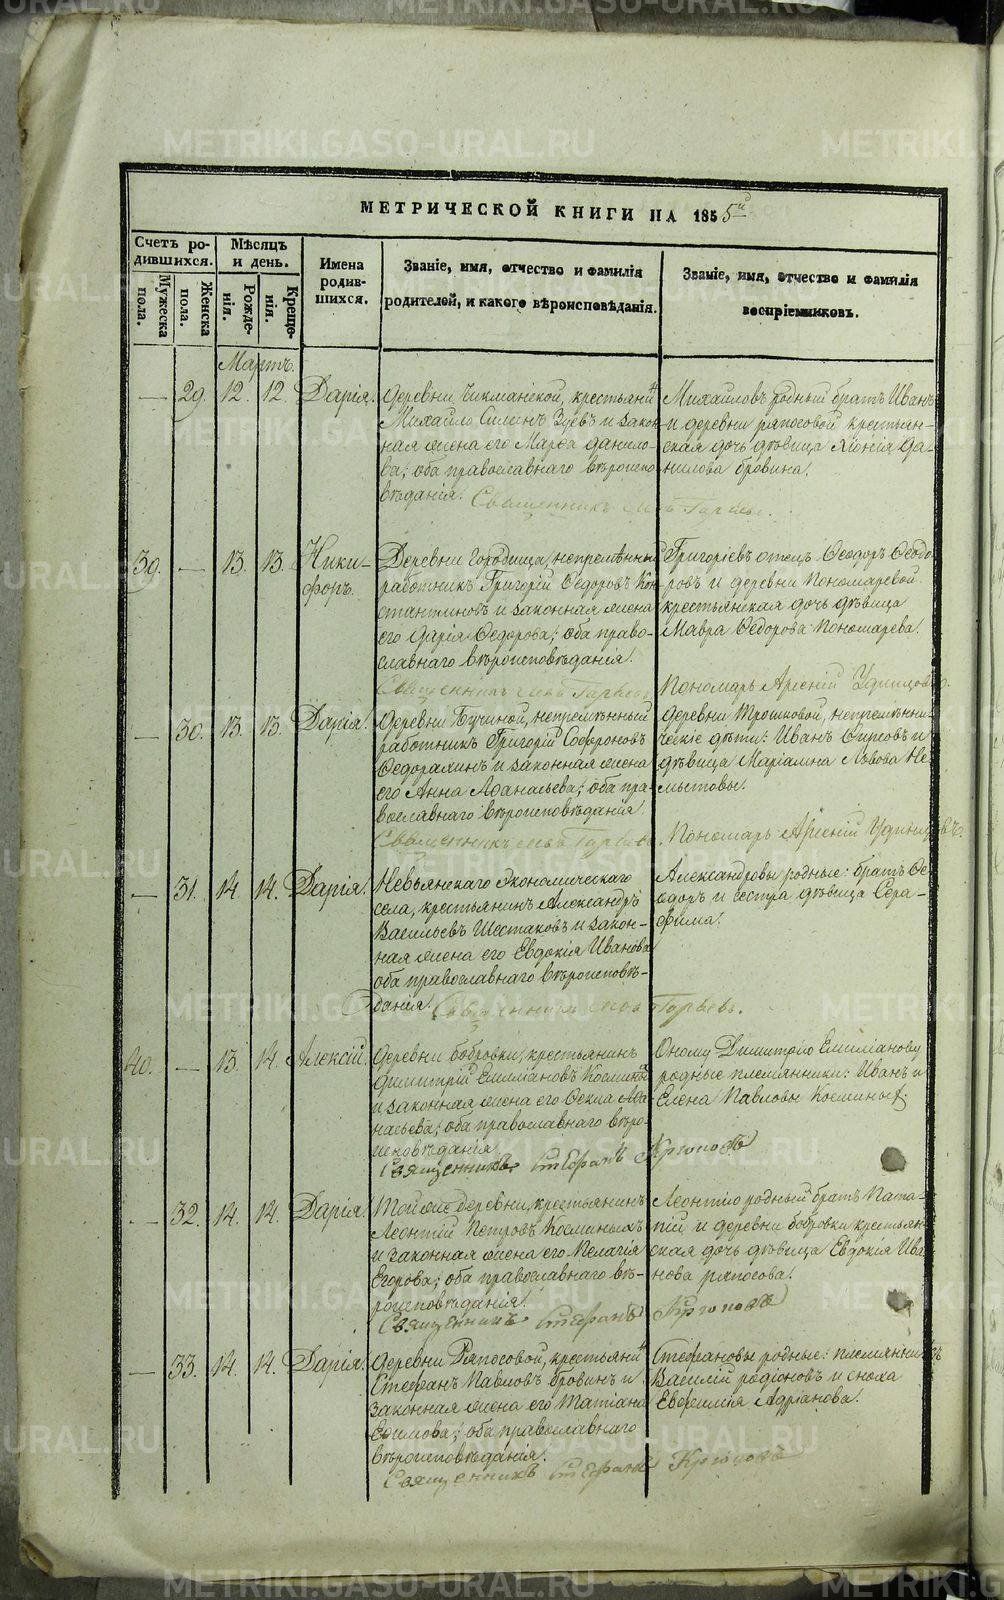 МЕТРИЧЕСКОЙ КНИГИ НА 1855й
Счетъ ро-
дившихся.
Мужеска
пола.
Женска
пола.
Мѣсяцъ
и день.
Рожде-
нія.
Креще-
нія.
Имена
родив-
шихся.
Званіе, имя, отчество и фамилія
родителей, и какого вѣроисповѣданія.
Званіе, имя, отчество и фамилія
воспріемниковъ.
Мартъ.
— 29. 12. 12. Дарія.
Деревни Чикманской, крестьянинъ
Михайло Силинъ Зуевъ и закон-
ная жена его Марѳа Данило-
ва; оба православнаго вѣроиспо-
вѣданія.
Священникъ
Михайловъ родный братъ Иванъ
и деревни Ряпосовой крестьян-
ская дочь дѣвица Хіонія Да-
нилова Бровина.
39. — 13. 13. Ники-
форъ.
Деревни Городища, непремѣнный
работникъ Григорій Ѳедоровъ Кон-
стантиновъ и законная жена
его Дарія Ѳедорова; оба право-
славнаго вѣроисповѣданія.
Священникъ
Григоріевъ отецъ Ѳеодоръ Ѳеодо-
ровъ и деревни Пономаревой
крестьянская дочь дѣвица
Мавра Ѳедорова Пономарева.
Пономарь Арсеній Удинцовъ.
— 30. 13. 13. Дарія.
Деревни Бучиной, непремѣнный
работникъ Григорій Софроновъ
Ѳедорахинъ и законная жена
его Анна Аѳанасьева; оба пра-
вославнаго вѣроисповѣданія
Священникъ
Деревни Трошковой, непремѣнни-
ческіе дѣти: Иванъ и
дѣвица Маріамна Львова Не-
мытовы.
Пономарь Арсеній Удинцовъ
— 31. 14. 14. Дарія.
Невьянскаго Экономическаго
села, крестьянинъ Александръ
Васильевъ Шестаковъ и закон-
ная жена его Евдокія Иванова
оба православнаго вѣроисповѣ-
данія.
Священникъ
Александровы родные: братъ Ѳе-
одоръ и сестра дѣвица Сера-
фима.
40. — 13. 14. Алексій.
Деревни Бобровки, крестьянинъ
Димитрій Емиліановъ Косминыхъ
и законная жена его Ѳекла Аѳа-
насьева; оба православнаго вѣро-
исповѣданія
Священникъ Стефанъ
Оному Димитрію Емиліанову
родные племянники: Иванъ и
Елена Павловы Космины.
— 32. 14. 14. Дарія.
Той же деревни, крестьянинъ
Леонтій Петровъ Косминыхъ
и законная жена его Пелагія
Егорова; оба православнаго вѣ-
роисповѣданія.
Священникъ Стефанъ
Леонтію родный братъ Пата-
пій и деревни Бобровки крестьян-
ская дочь дѣвица Евдокія Ива-
нова Ряпосова.
— 33. 14. 14. Дарія.
Деревни Ряпосовой, крестьянинъ
Стефанъ Павловъ Бровинъ и
законная жена его Татіана
Ефимова; оба православнаго
вѣроисповѣданія.
Священникъ Стефанъ
Стефановы родные: племянникъ
Василій Родіоновъ и сноха
Евфимія Адріанова.
METRIKI.GASO-URAL.RU